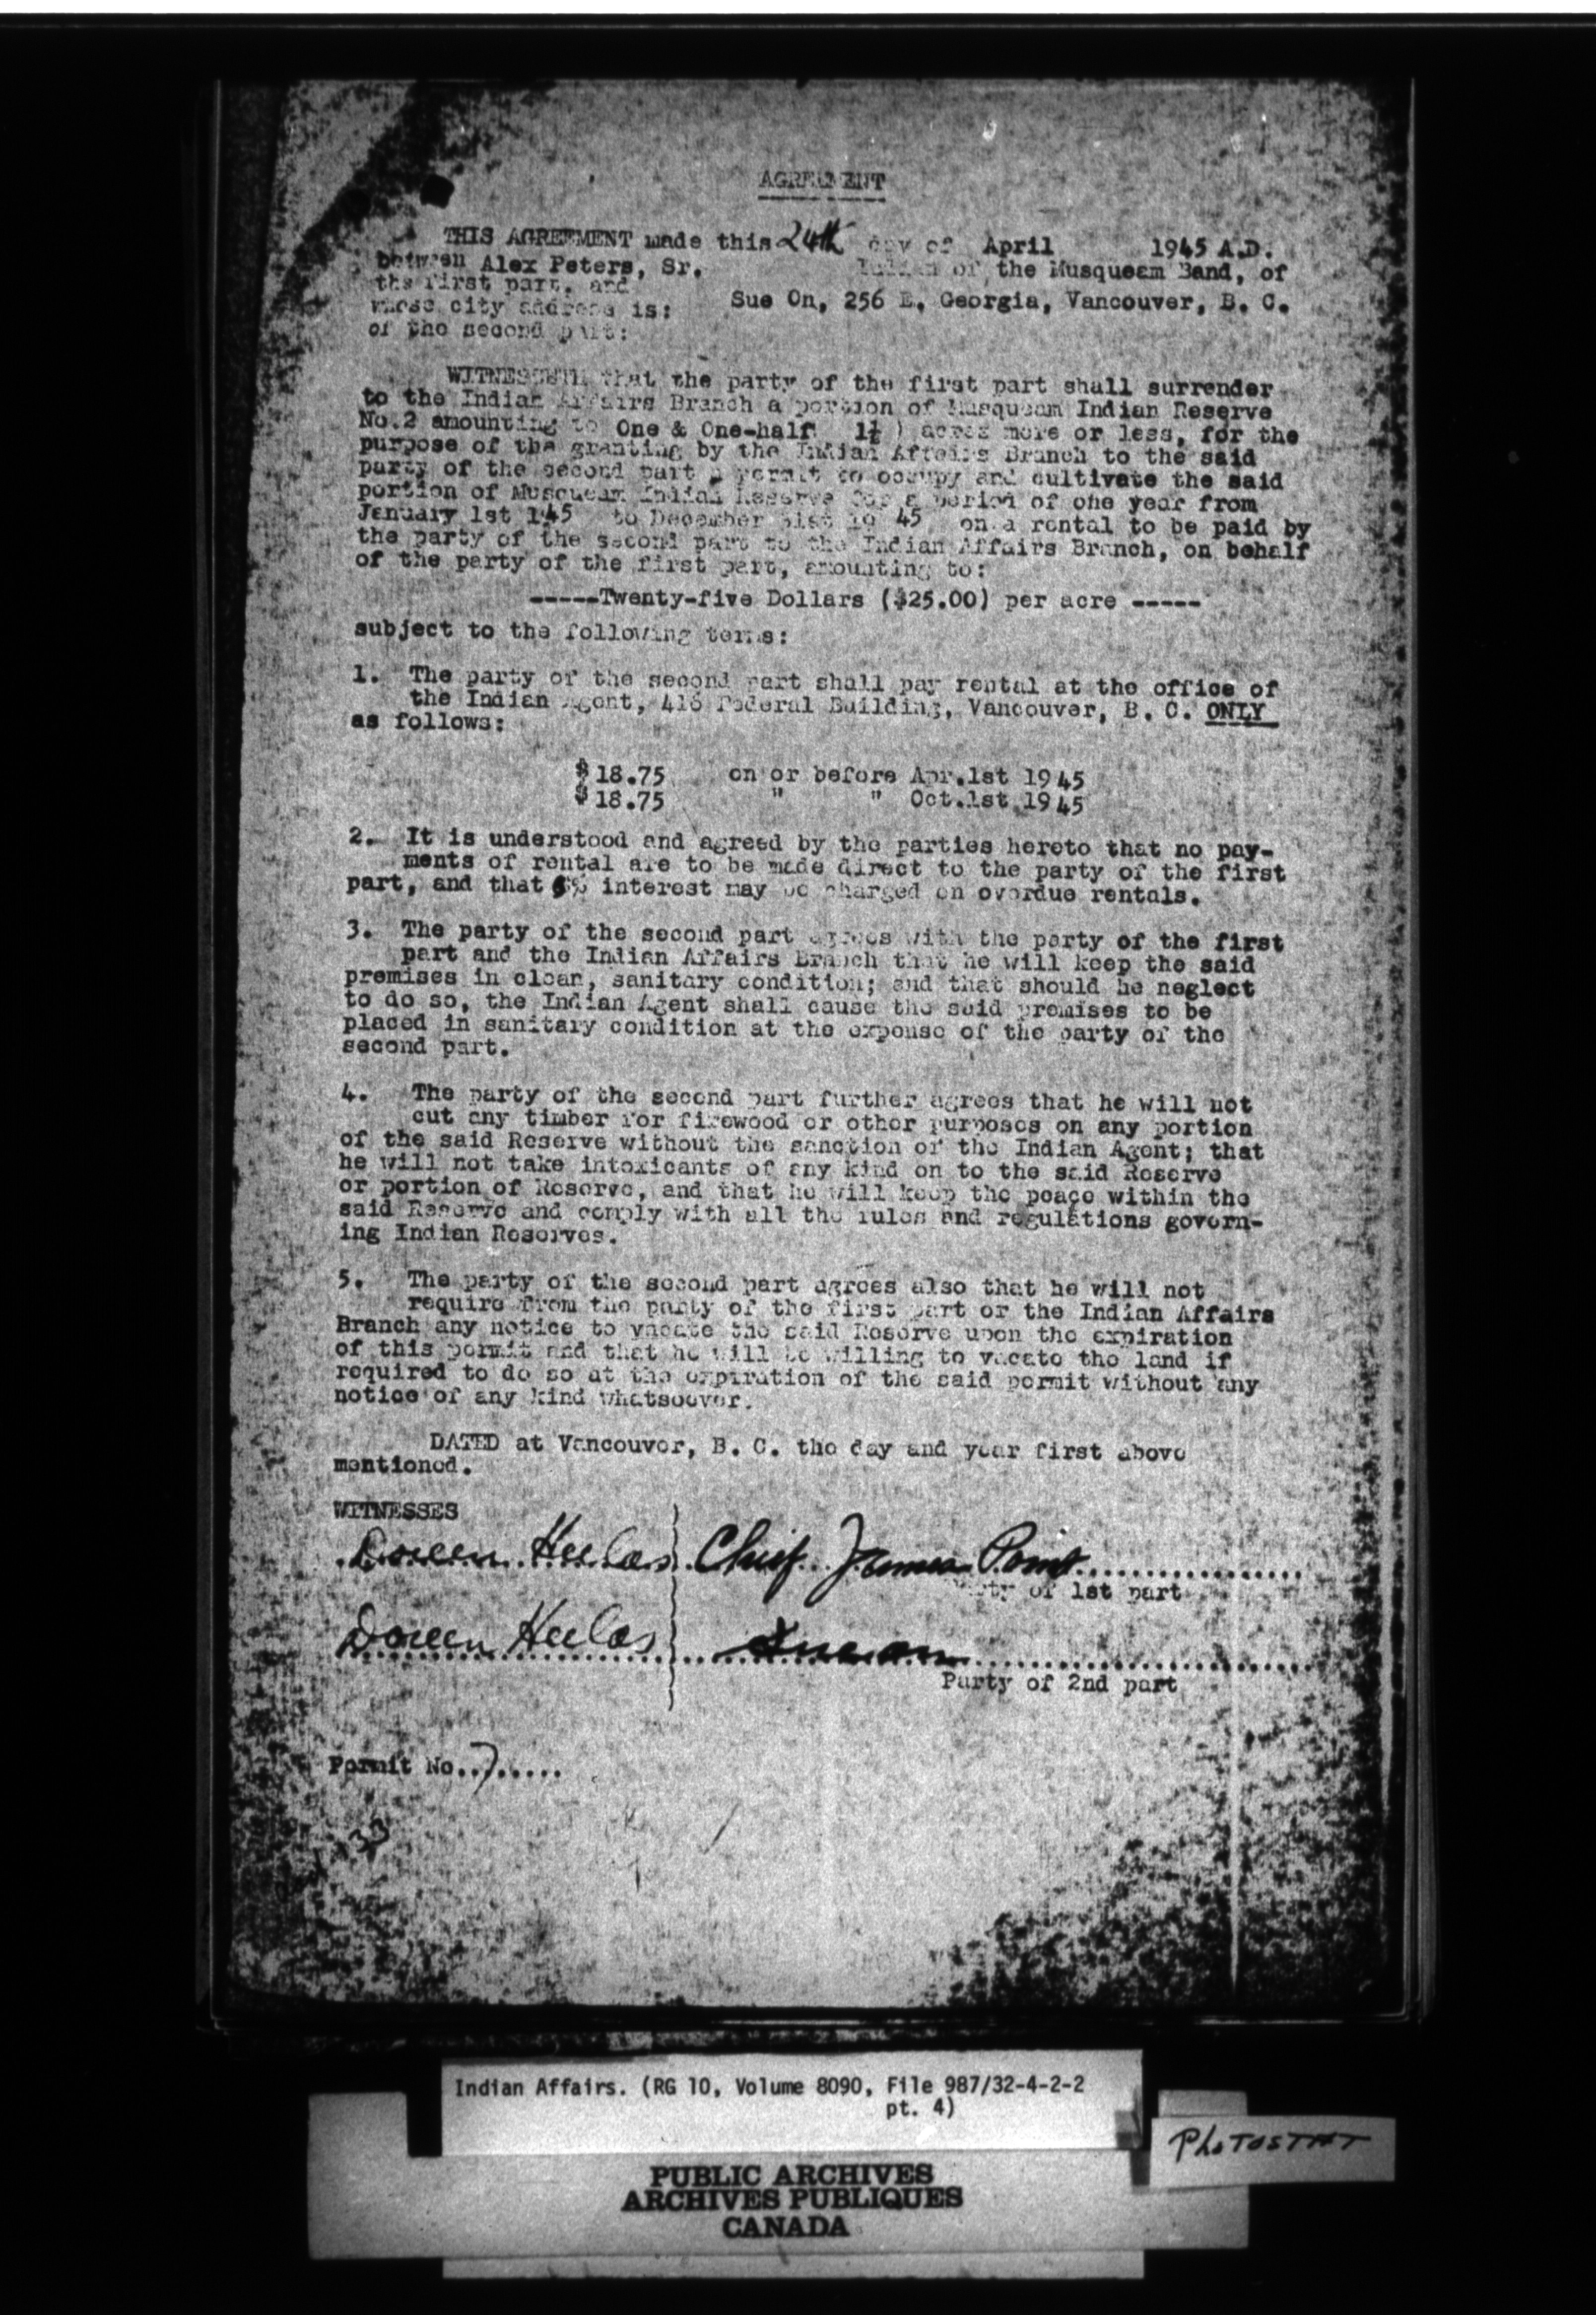 AGREEMENT
THIS AGREEMENT made this 24th day of April 1945 A.D.
between Alex Peters, Sr. Indian of the Musqueam Band, of
the first part, and
whose city address is: Sue On, 256 E. Georgia, Vancouver, B. C.
of the second part:
WITNESSETH that the party of the first part shall surrender
to the Indian Affairs Branch a portion of Musqueam Indian Reserve
No.2 amounting to One & One-half 1½ ) acres more or less, for the
purpose of the granting by the Indian Affairs Branch to the said
party of the second part a permit to occupy and cultivate the said
portion of Musqueam Indian Reserve for a period of one year from
January 1st 145 to December 31st 19 45 on a rental to be paid by
the party of the second part to the Indian Affairs Branch, on behalf
of the party of the first part, amounting to:
-----Twenty-five Dollars ($25.00) per acre -----
subject to the following terms:
1. The party of the second part shall pay rental at the office of
the Indian Agent, 416 Federal Building, Vancouver, B. C. ONLY
as follows:
$18.75 on or before Apr.1st 1945
$18.75 " " Oct.1st 1945
2. It is understood and agreed by the parties hereto that no pay-
ments of rental are to be made direct to the party of the first
part, and that % interest may be charged on overdue rentals.
3. The party of the second part agrees with the party of the first
part and the Indian Affairs Branch that he will keep the said
premises in clean, sanitary condition; and that should he neglect
to do so, the Indian Agent shall cause the said premises to be
placed in sanitary condition at the expense of the party of the
second part.
4. The party of the second part further agrees that he will not
cut any timber for firewood or other purposes on any portion
of the said Reserve without the sanction of the Indian Agent; that
he will not take intoxicants of any kind on to the said Reserve
or portion of Reserve, and that he will keep the peace within the
said Reserve and comply with all the rules and regulations govern-
ing Indian Reserves.
5. The party of the second part agrees also that he will not
require from the party of the first part or the Indian Affairs
Branch any notice to vacate the said Reserve upon the expiration
of this permit and that he will be willing to vacate the land if
required to do so at the expiration of the said permit without any
notice of any kind whatsoever.
DATED at Vancouver, B. C. the day and year first above
mentioned.
WITNESSES
Doreen Heelas Chief James Point
Party of 1st part
Doreen Heelas Sue on
Party of 2nd part
Permit No..7.....
33
Indian Affairs. (RG 10, Volume 8090, File 987/32-4-2-2
pt. 4)
PHOTOSTAT
PUBLIC ARCHIVES
ARCHIVES PUBLIQUES
CANADA